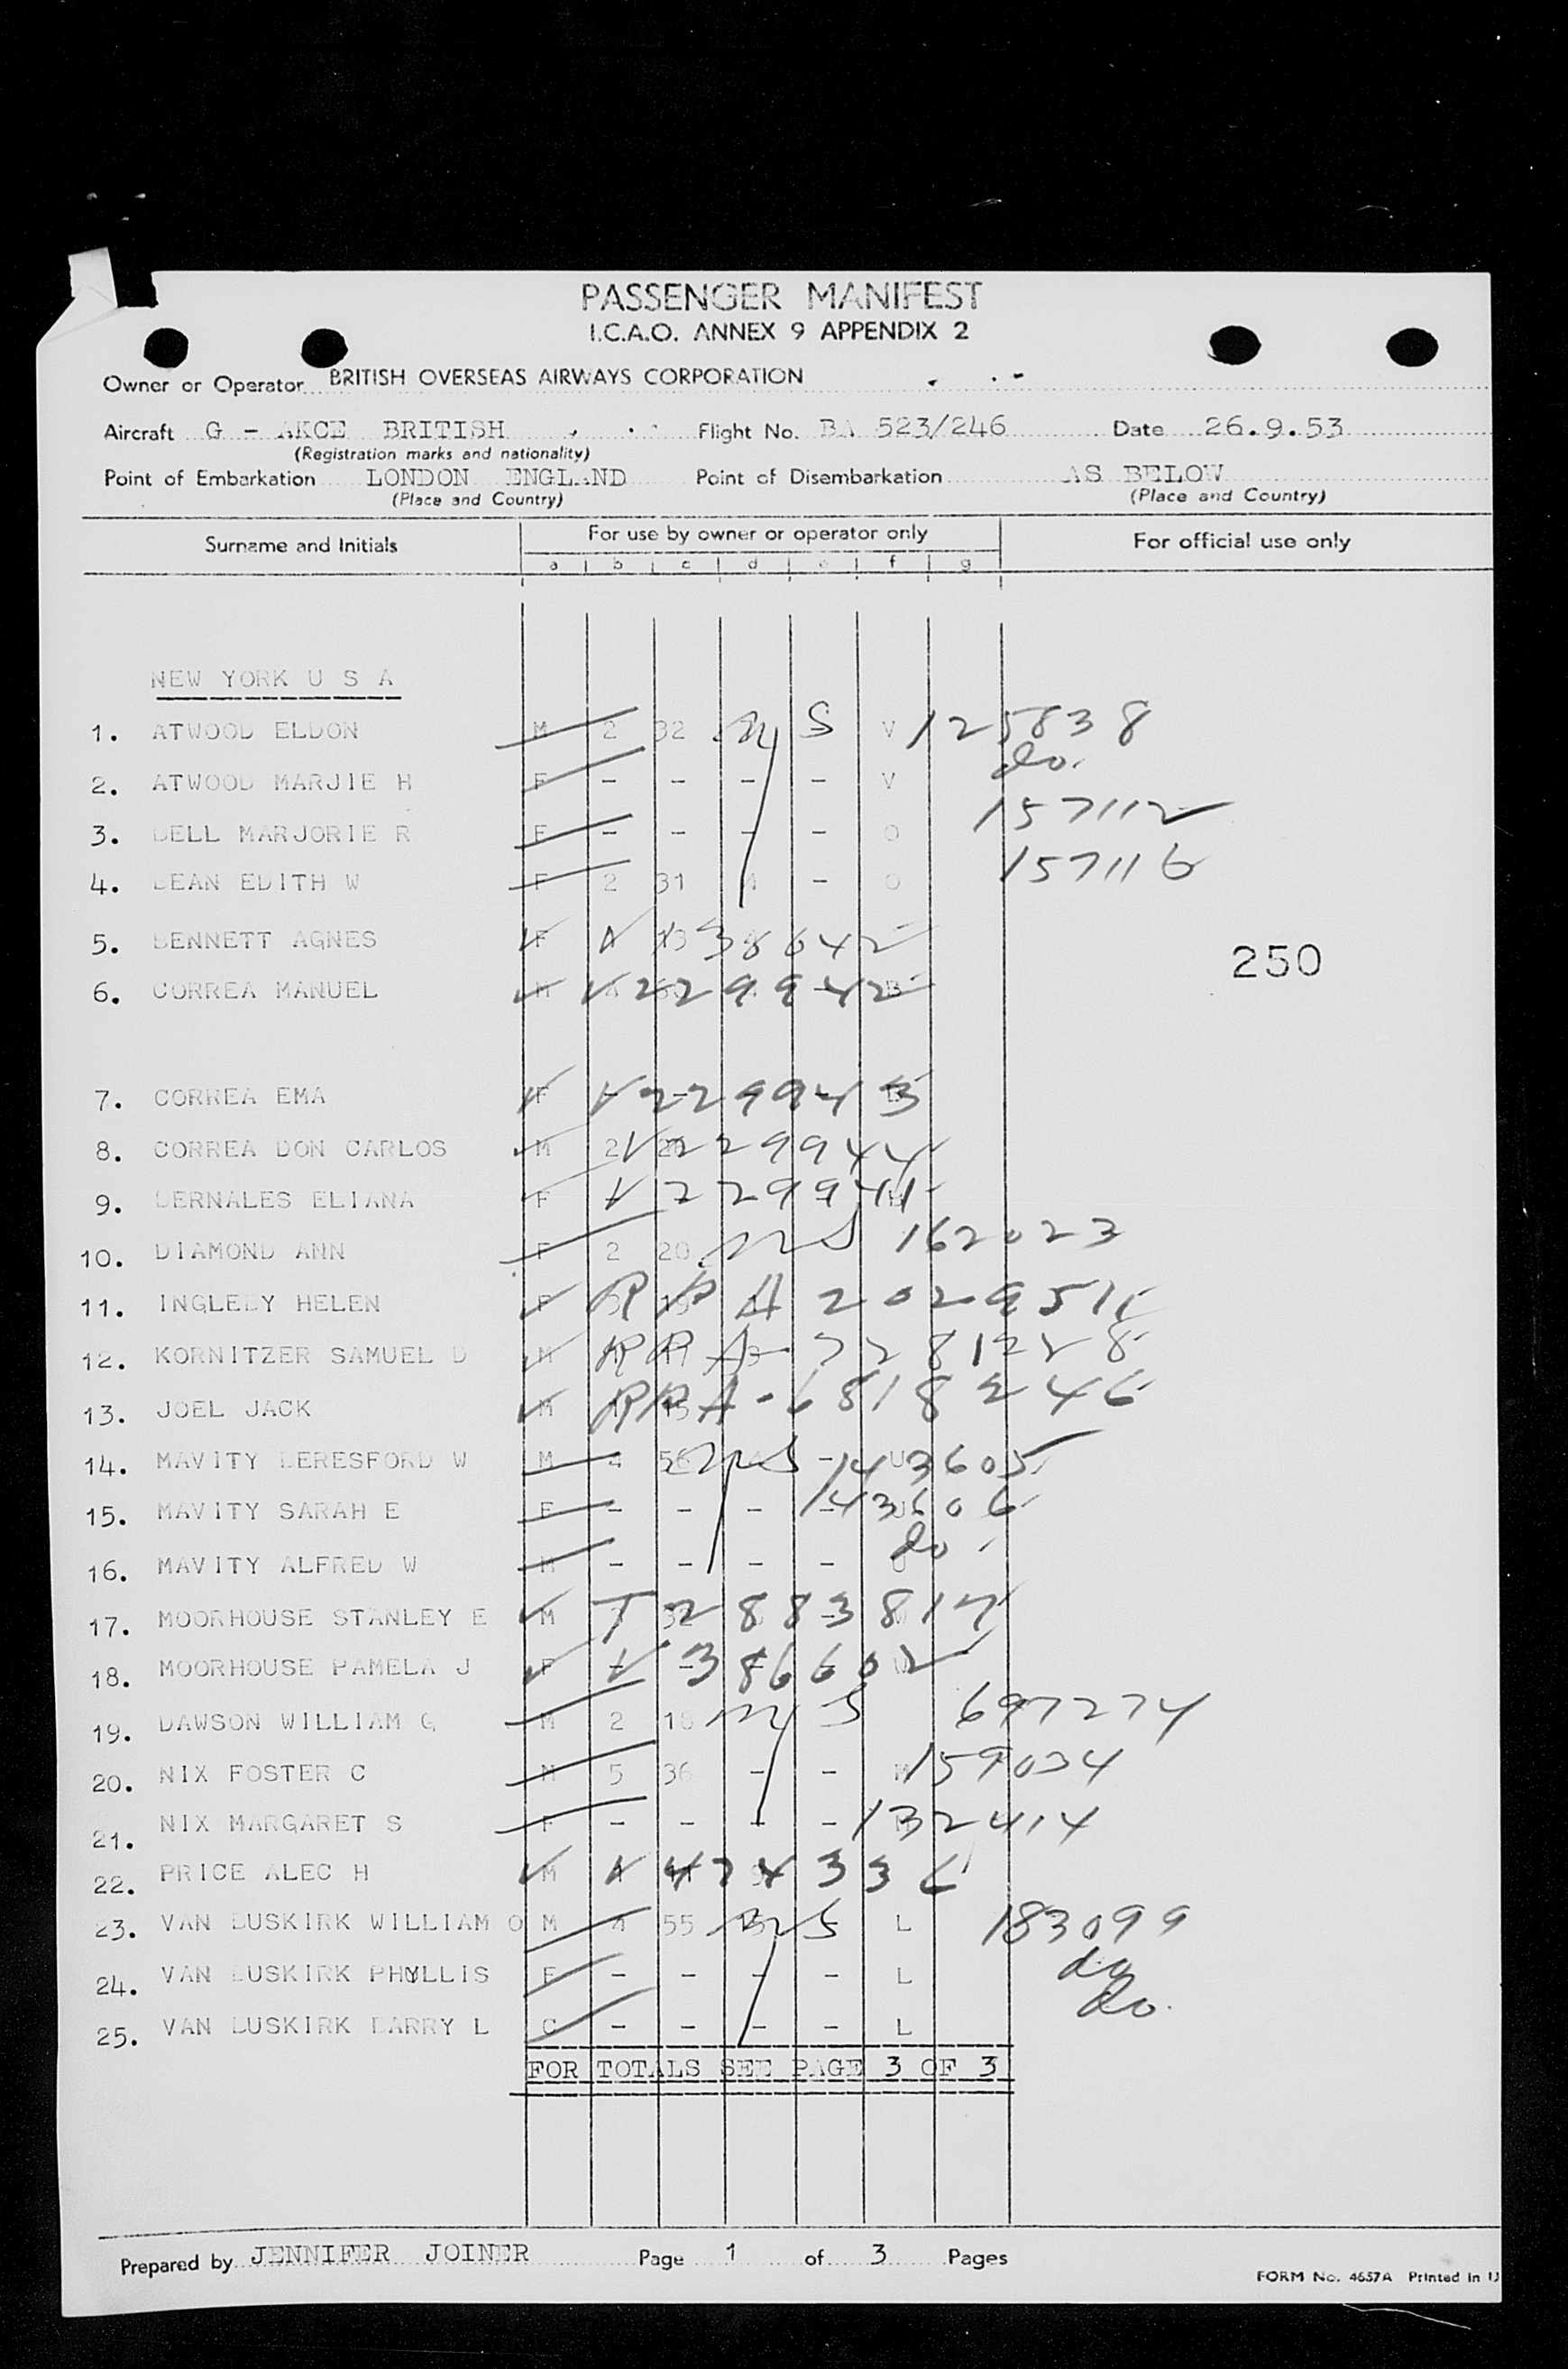 PASSENGER MANIFEST
I.C.A.O. ANNEX 9 APPENDIX 2
Owner or Operator BRITISH OVERSEAS AIRWAYS CORPORATION
Aircraft G - AKCE BRITISH Flight No. BA 523/246 Date 26.9.53
(Registration marks and nationality)
Point of Embarkation LONDON ENGLAND Point of Disembarkation AS BELOW
(Place and Country) (Place and Country)
Surname and Initials For use by owner or operator only For official use only
a b c d e f g
NEW YORK U S A
1. ATWOOD ELDON M 2 32 S V 125838
2. ATWOOD MARJIE H F - - - - V do.
3. BELL MARJORIE R F - - - - O 157112
4. BEAN EDITH W F 2 31 4 - O 157116
5. BENNETT AGNES F V 138642
250
6. CORREA MANUEL M V 229942
7. CORREA EMA F V 229943
8. CORREA DON CARLOS M 2 V 229944
9. BERNALES ELIANA F V 229941
10. DIAMOND ANN F 2 20 162023
11. INGLEBY HELEN F RPA 2029511
12. KORNITZER SAMUEL D M RPA - 7281228
13. JOEL JACK M RPA - 6818246
14. MAVITY BERESFORD W M 4 56 - U 143605
15. MAVITY SARAH E F - - - - 143606
16. MAVITY ALFRED W M - - - - U do
17. MOORHOUSE STANLEY E M 32 2883817
18. MOORHOUSE PAMELA J F V 386602
19. DAWSON WILLIAM G M 2 18 S 697274
20. NIX FOSTER C M 5 36 - - M 159034
21. NIX MARGARET S F - - - - 132414
22. PRICE ALEC H M V 474336
23. VAN BUSKIRK WILLIAM O M 4 55 S L 183099
24. VAN BUSKIRK PHYLLIS F - - - - L do
25. VAN BUSKIRK BARRY L C - - - - L do.
FOR TOTALS SEE PAGE 3 OF 3
Prepared by JENNIFER JOINER Page 1 of 3 Pages
FORM No. 4657A Printed in U